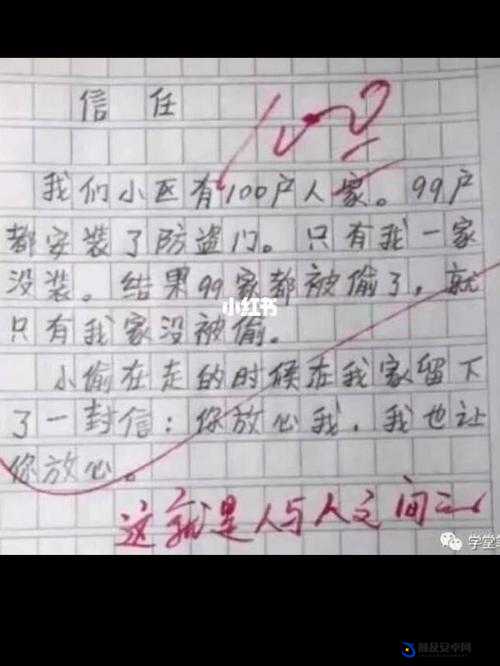 信任
我们小区有100户人家。99户
都安装了防盗门。只有我一家
没装。结果99家都被偷了，就
只有我家没被偷。
小偷在走的时候在我家留下
了一封信：你放心我，我也让
你放心。
这就是人与人之间
小红书
学堂